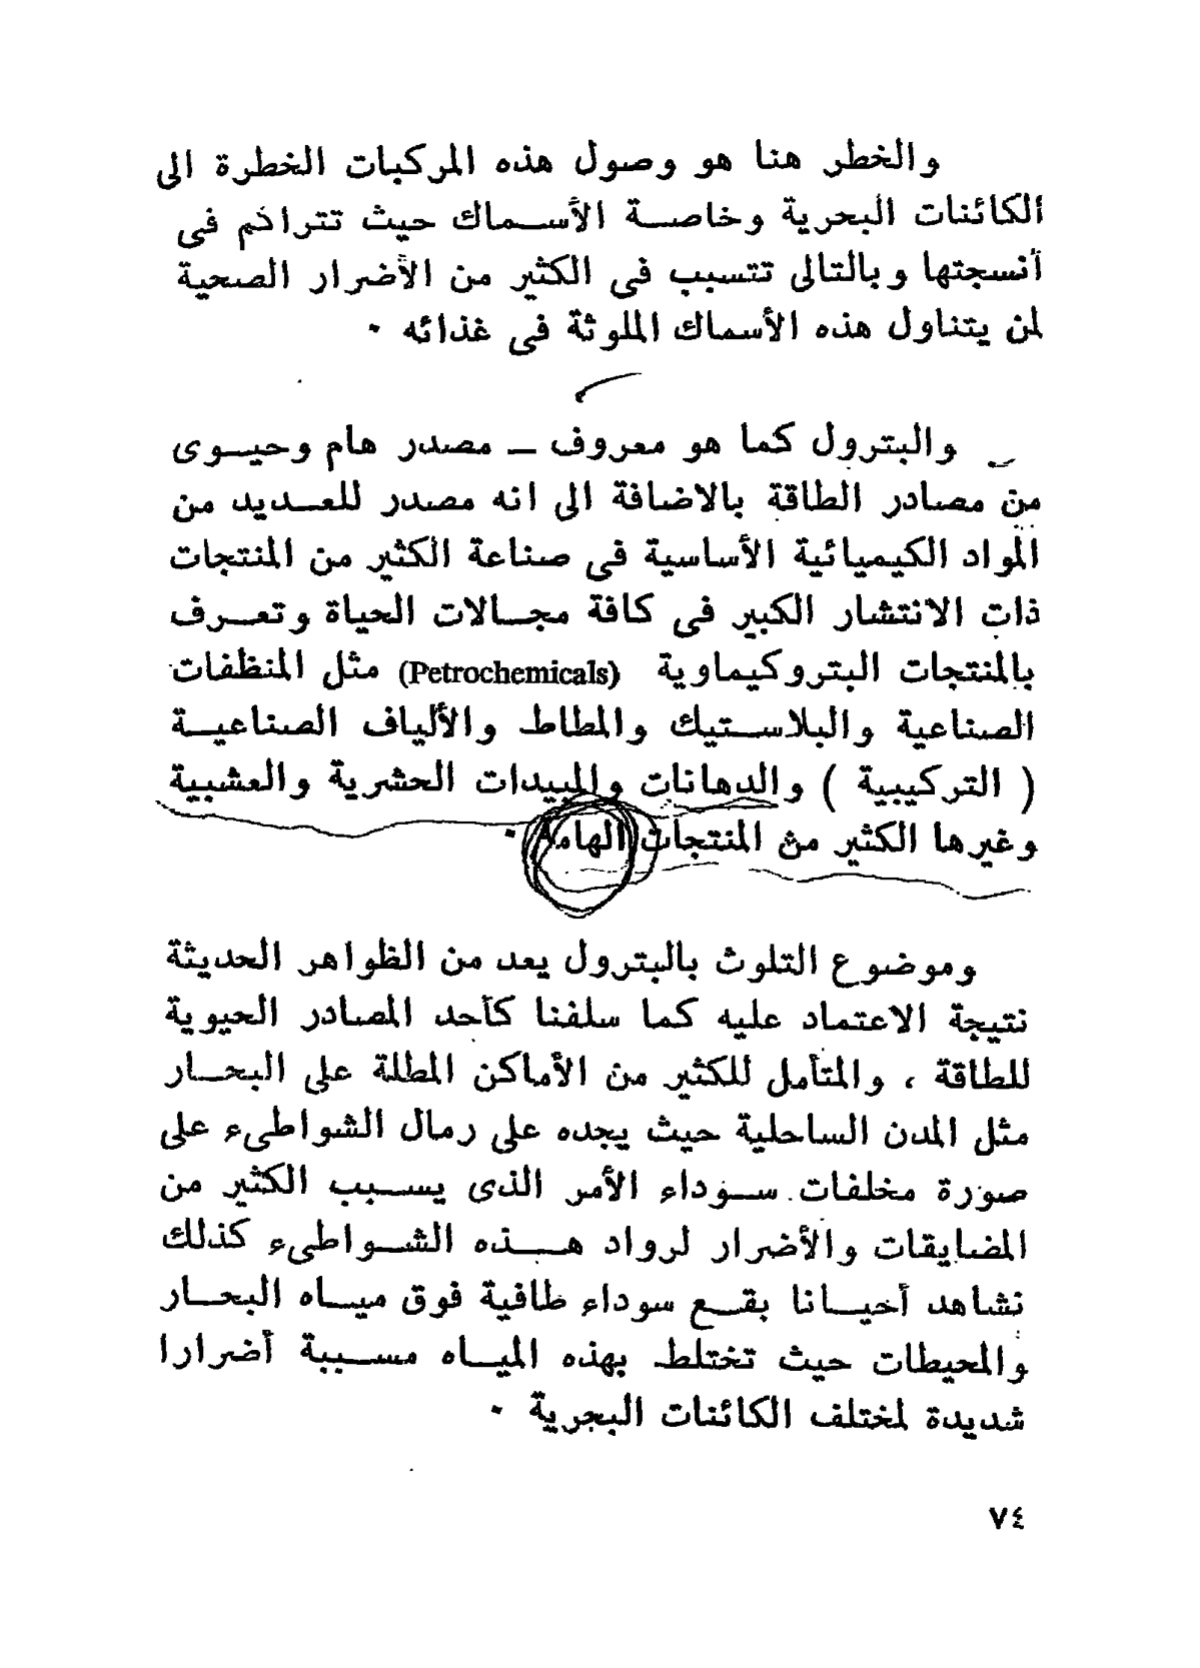 والخطر هنا هو وصول هذه المركبات الخطرة الى
الكائنات البحرية وخاصة الأسماك حيث تتراكم فى
أنسجتها وبالتالى تتسبب فى الكثير من الأضرار الصحية
لمن يتناول هذه الأسماك الملوثة فى غذائه .
والبترول كما هو معروف ــ مصدر هام وحيوى
من مصادر الطاقة بالاضافة الى انه مصدر للعديد من
المواد الكيميائية الأساسية فى صناعة الكثير من المنتجات
ذات الانتشار الكبير فى كافة مجالات الحياة وتعرف
بالمنتجات البتروكيماوية (Petrochemicals) مثل المنظفات
الصناعية والبلاستيك والمطاط والألياف الصناعية
( التركيبية ) والدهانات والمبيدات الحشرية والعشبية
وغيرها الكثير من المنتجات الهامة .
وموضوع التلوث بالبترول يعد من الظواهر الحديثة
نتيجة الاعتماد عليه كما سلفنا كأحد المصادر الحيوية
للطاقة ، والمتأمل للكثير من الأماكن المطلة على البحار
مثل المدن الساحلية حيث يجده على رمال الشواطىء على
صورة مخلفات سوداء الأمر الذى يسبب الكثير من
المضايقات والأضرار لرواد هذه الشواطىء كذلك
نشاهد أحيانا بقع سوداء طافية فوق مياه البحار
والمحيطات حيث تختلط بهذه المياه مسببة أضرارا
شديدة لمختلف الكائنات البحرية .
٧٤